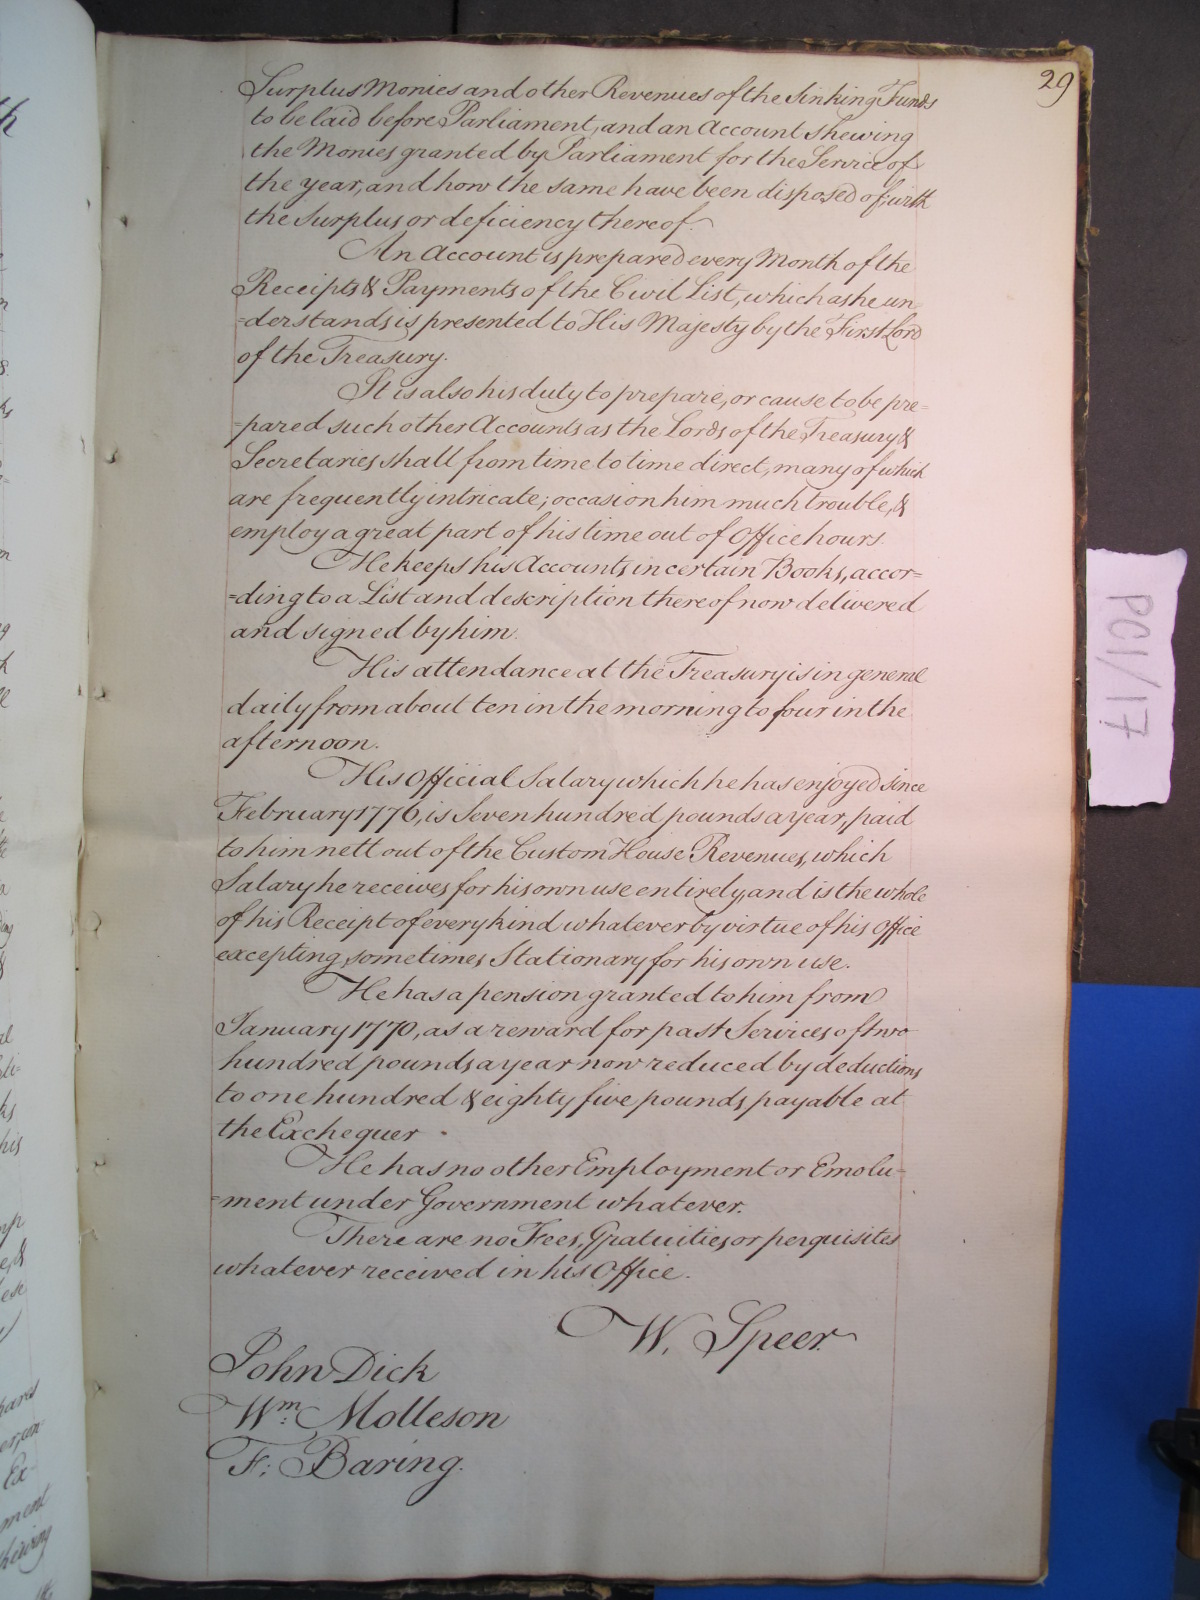 29
Surplus Monies and other Revenues of the Sinking Funds
to be laid before Parliament, and an Account shewing
the Monies granted by Parliament for the Service of
the year, and how the same have been disposed of; with
the Surplus or deficiency thereof.
An Account is prepared every Month of the
Receipts & Payments of the Civil List, which as he un
=derstands is presented to His Majesty by the First Lord
of the Treasury.
It is also his duty to prepare, or cause to be pre=
=pared such other Accounts as the Lords of the Treasury &
Secretaries shall from time to time direct, many of which
are frequently intricate; occasion him much trouble, &
employ a great part of his time out of Office hours.
He keeps his Accounts in certain Books, accor=
=ding to a List and description thereof now delivered
and signed by him.
His attendance at the Treasury is in general
daily from about ten in the morning to four in the
afternoon.
His Official Salary which he has enjoyed since
February 1776, is Seven hundred pounds a year, paid
to him nett out of the Custom House Revenues, which
Salary he receives for his own use entirely, and is the whole
of his Receipt of every kind whatever by virtue of his Office
excepting sometimes Stationary for his own use.
He has a pension granted to him from
January 1770, as a reward for past Services of two
hundred pounds a year now reduced by deductions
to one hundred & eighty five pounds payable at
the Exchequer
He has no other Employment or Emolu=
=ment under Government whatever.
There are no Fees, Gratuities or perquisites
whatever received in his Office.
W. Speer
John Dick
Wm: Molleson
F: Baring.
PC1/17